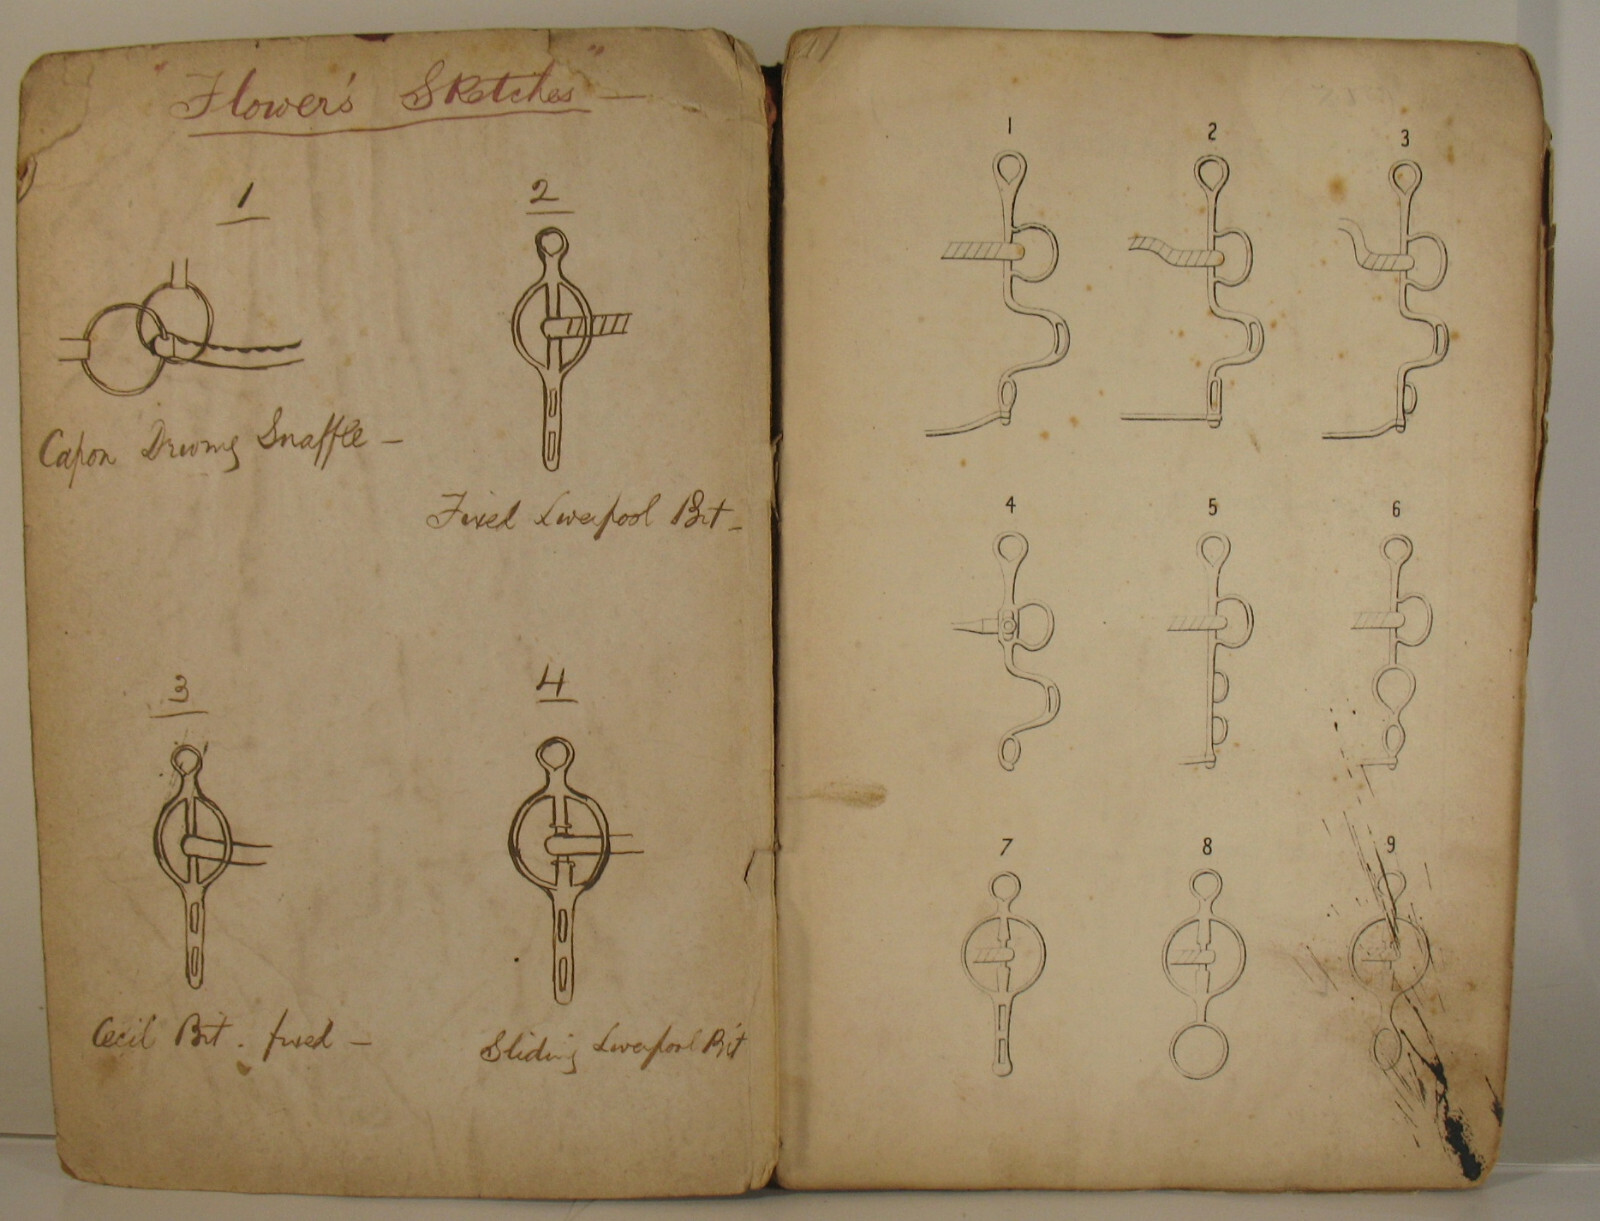 "Flower's Sketches" —
1
2
Capon Driving Snaffle —
Fixed Liverpool Bit —
3
4
Cecil Bit . fixed —
Sliding Liverpool Bit
1 2 3
4 5 6
7 8 9